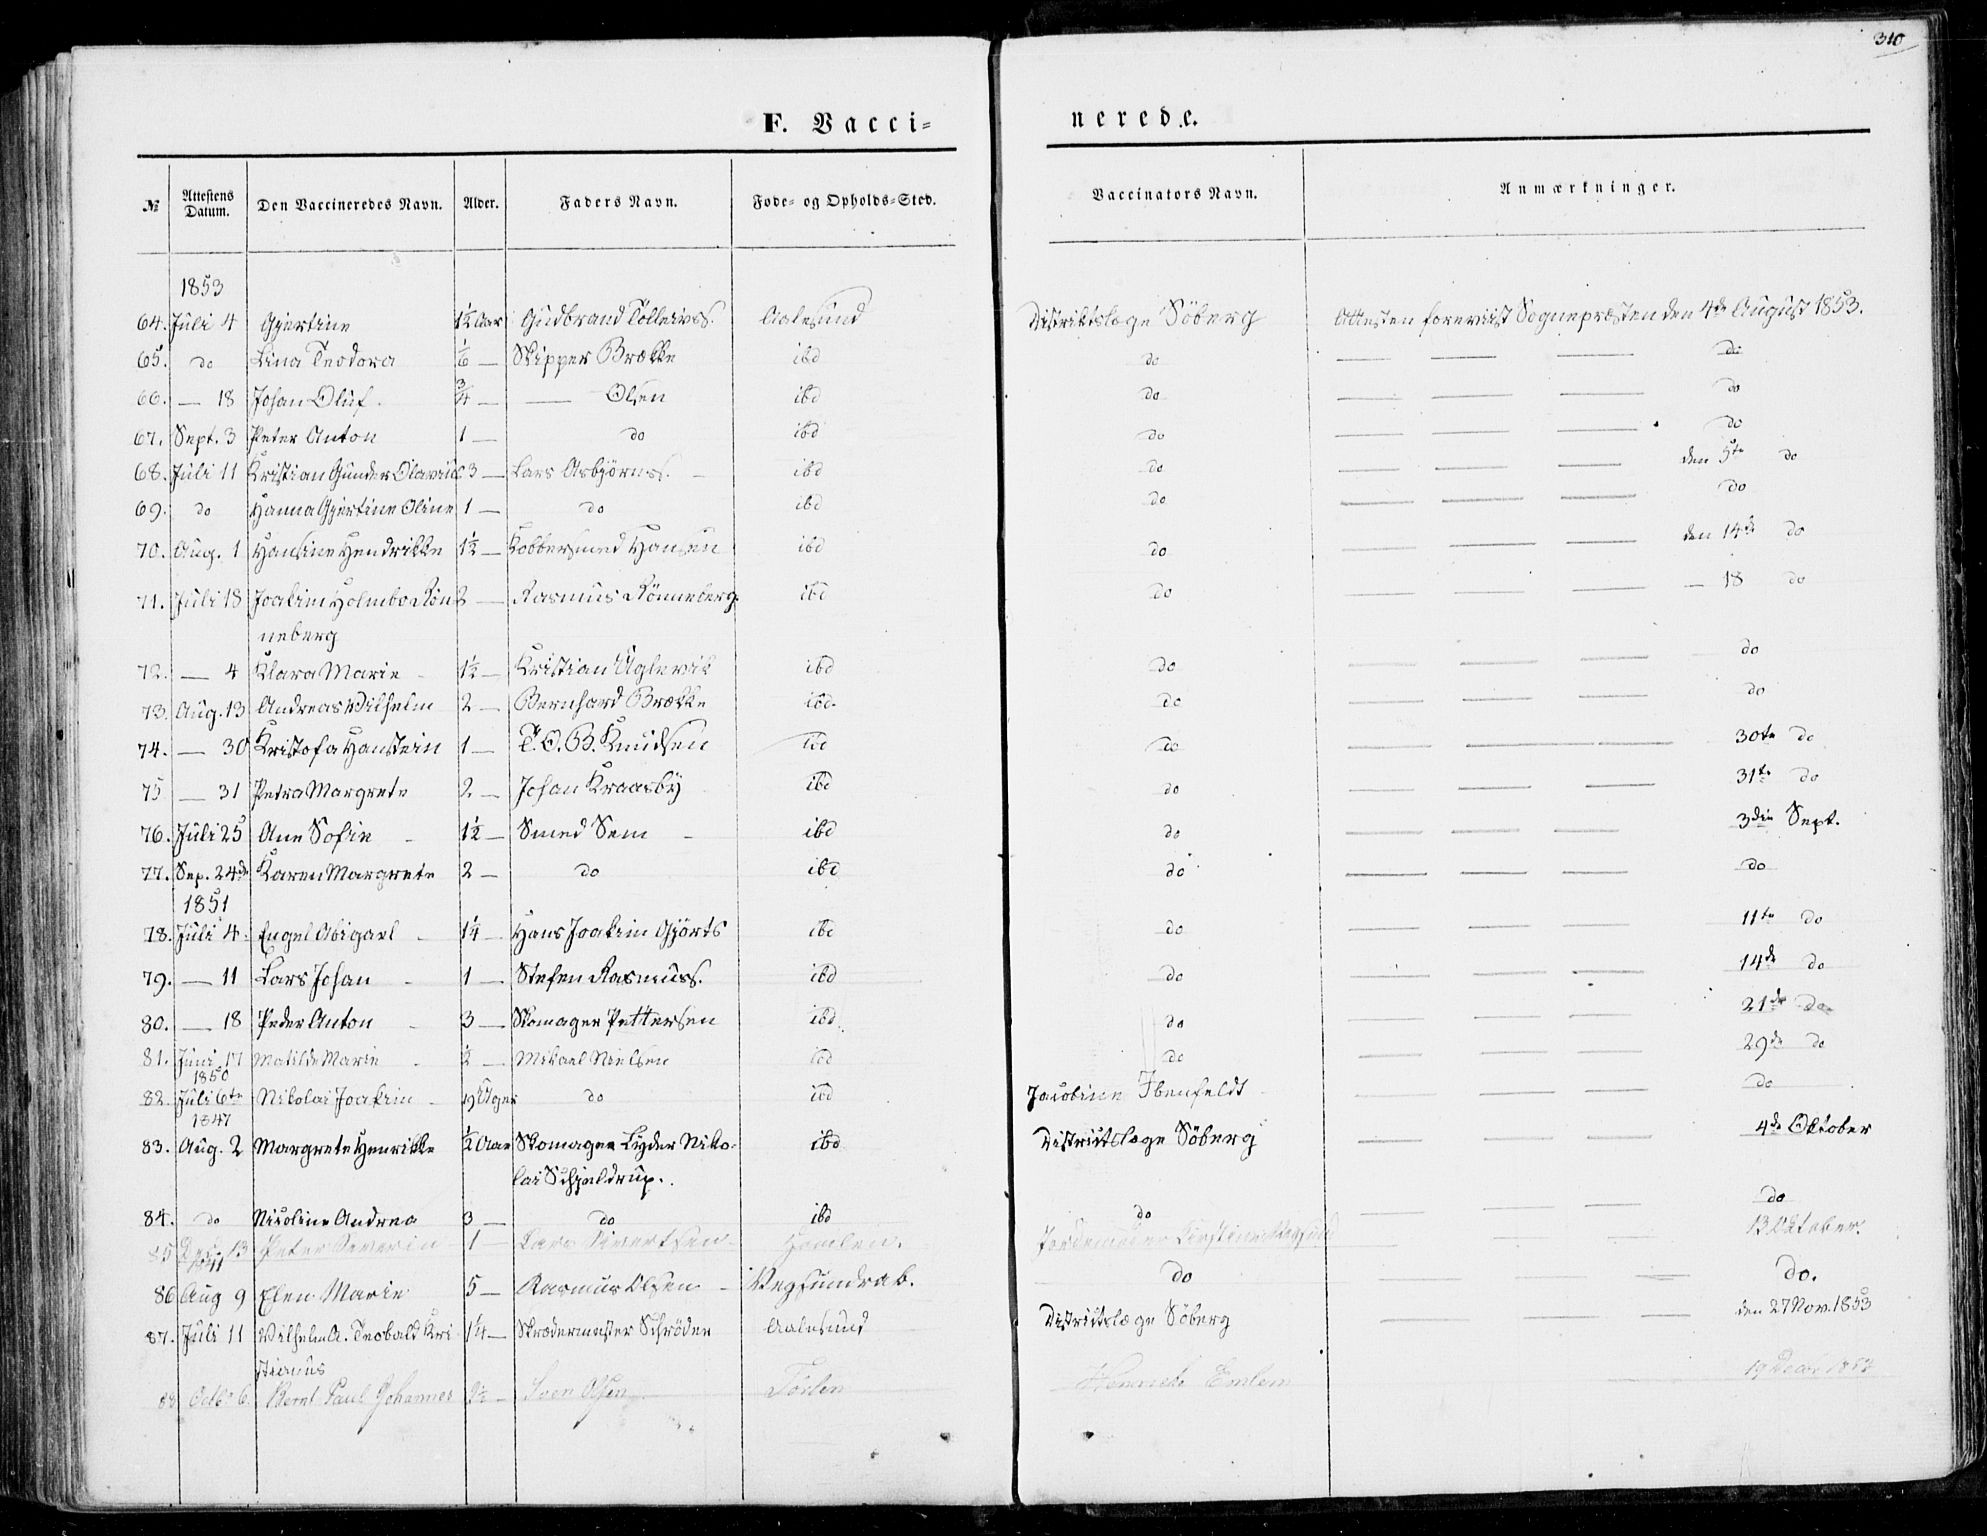 310
F. Vacci=
nerede.
№ Attestens Datum. Den Vaccineredes Navn. Alder. Faders Navn. Føde- og Opholds-Sted. Vaccinators Navn. Anmærkninger.
1853
64. Juli 4 Gjertine 1½ Aar Gudbrand Tolleivss. Aalesund Distriktslæge Söberg Attesten foreviist Sognepræsten den 4de August 1853.
65. do Lina Teodora 1/6 — Skipper Brække ibd do — — — do
66. — 18 Johan Oluf. ¾ — — Olsen ibd do — — — do
67. Sept. 3 Peter Anton 1 — do ibd do — — — do
68. Juli 11 Kristian Gunder Olavius 3 — Lars Asbjörnss. ibd do — — — den 5te do
69. do Hanna Gjertine Oline 1 — do ibd do — — — do
70. Aug. 1 Hansine Hendrikke 1½ — Kobbersmed Hansen ibd do — — — den 14de do
71. Juli 18 Joakim Holmbo Rön- 2 — Rasmus Rönneberg ibd do — — — — 18 do
neberg
72. — 4 Klara Marie 1½ — Kristian Uglevik ibd do — — — do
73. Aug. 13 Andreas Vilhelm 2 — Bernhard Brække ibd. do — — — do
74. — 30 Kristofa Hanstein 1 — T. O. B. Knudsen ibd do — — — 30te do
75 — 31 Petra Margrete 2 — Johan Kraasby ibd do — — — 31te do
76. Juli 25 Ane Sofie 1½ — Smed Sem ibd do — — — 3die Sept.
77. Sep. 24de Karen Margrete 2 — do ibd do — — — do
1851
78. Juli 4. Engel Abigael 1¼ — Hans Joakim Gjörts ibd do — — — 11te do
79. — 11 Lars Johan 1 — Stefen Rasmuss. ibd do — — — 14de do
80. — 18 Peder Anton 3 — Skomager Pettersen ibd do — — — 21de do
81. Juni 17 Matilde Marie ½ — Mikael Nielsen ibd do — — — 29de do
1850
82. Juli 6te Nikolai Joakim 19 Uger do ibd Jacobine Ibenfeldt — — — do
1847
83. Aug. 2 Margrete Henrikke ½ Aar Skomager Lyder Niko- ibd Distriktslæge Söberg — — — 4de Oktober
lai Schjeldrup.
84. do Nicoline Andrea 3 — do ibd do — — — do
85 13 Peter Severin 1 — Lars Sivertsen — — — 13 Oktober.
86 Aug 9 Elen Marie 5 — Rasmus Olsen Vegsundrab. do — — — do.
87. Juli 11 Vilhelm A. Teobald Kri- 1¼ — Skrædermester Schröder Aalesund Distriktslæge Söberg — — — den 27 Nov. 1853
stianus
88 Octbr 6 Bernt Paul Johannes 2½ — Sven Olsen Henriette Emlem 19 Decbr 1853